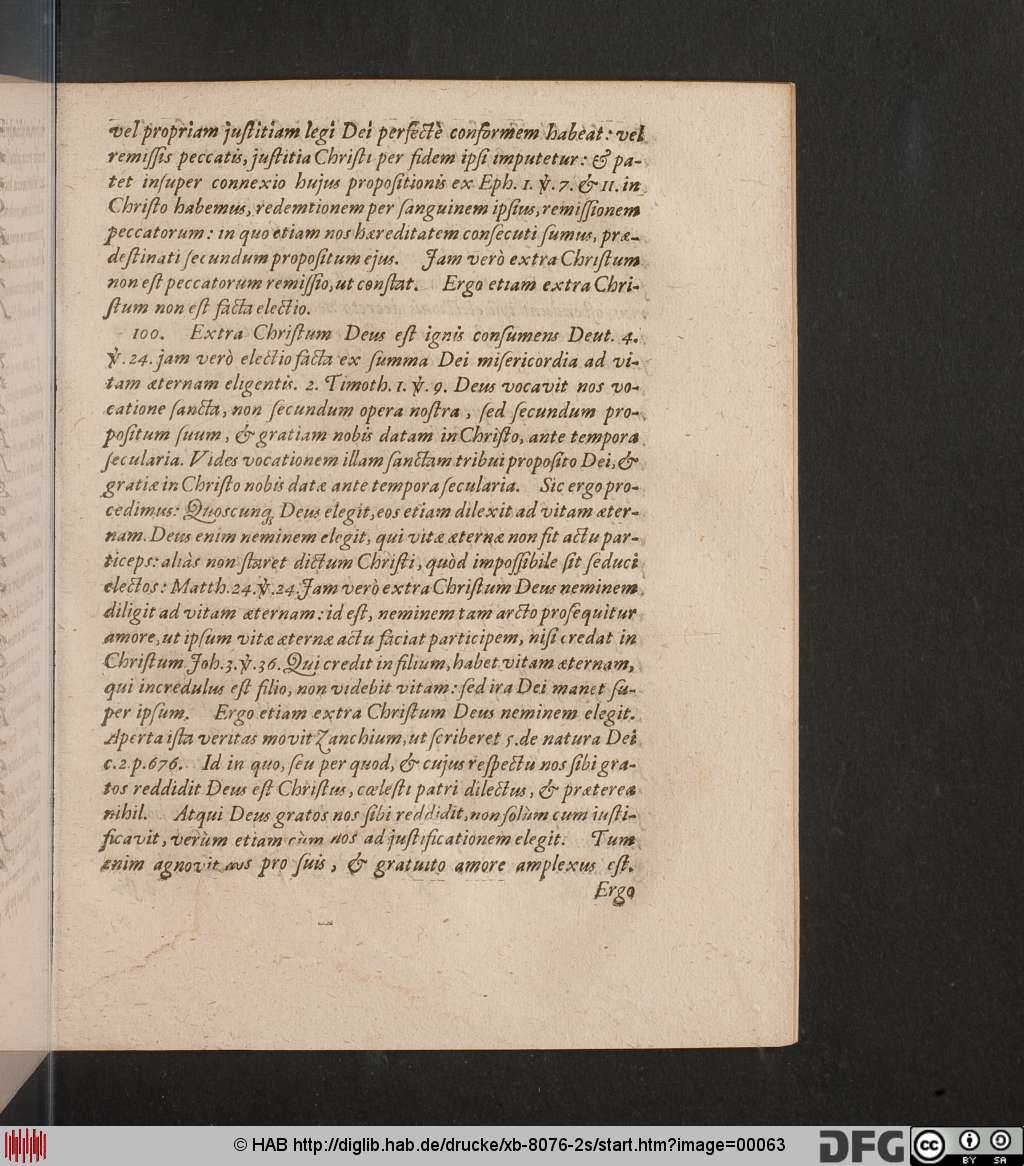 vel propriam juſtitiam legi Dei perfectè conformem habeat: vel
remiſſis peccatis, juſtitia Chriſti per fidem ipſi imputetur: & pa-
tet inſuper connexio hujus propoſitionis ex Eph. 1. ℣. 7. & 11. in
Chriſto habemus, redemtionem per ſanguinem ipſius, remiſſionem
peccatorum: in quo etiam nos hæreditatem conſecuti ſumus, præ-
deſtinati ſecundum propoſitum ejus. Jam verò extra Chriſtum
non eſt peccatorum remiſſio, ut conſtat. Ergo etiam extra Chri-
ſtum non eſt facta electio.
100. Extra Chriſtum Deus eſt ignis conſumens Deut. 4.
℣. 24. jam verò electio facta ex ſumma Dei miſericordia ad vi-
tam æternam eligentis. 2. Timoth. 1. ℣. 9. Deus vocavit nos vo-
catione ſancta, non ſecundum opera noſtra, ſed ſecundum pro-
poſitum ſuum, & gratiam nobis datam in Chriſto, ante tempora
ſecularia. Vides vocationem illam ſanctam tribui propoſito Dei, &
gratiæ in Chriſto nobis datæ ante tempora ſecularia. Sic ergo pro-
cedimus: Quoscunq; Deus elegit, eos etiam dilexit ad vitam æter-
nam. Deus enim neminem elegit, qui vitæ æternæ non fit actu par-
ticeps: aliàs non ſtaret dictum Chriſti, quòd impoſſibile ſit ſeduci
electos: Matth. 24. ℣. 24. Jam verò extra Chriſtum Deus neminem
diligit ad vitam æternam: id eſt, neminem tam arcto proſequitur
amore, ut ipſum vitæ æternæ actu faciat participem, niſi credat in
Chriſtum Joh. 3. ℣. 36. Qui credit in filium, habet vitam æternam,
qui incredulus eſt filio, non videbit vitam: ſed ira Dei manet ſu-
per ipſum. Ergo etiam extra Chriſtum Deus neminem elegit.
Aperta iſta veritas movit Zanchium, ut ſcriberet 5. de natura Dei
c. 2 p. 676. Id in quo, ſeu per quod, & cujus reſpectu nos ſibi gra-
tos reddidit Deus eſt Chriſtus, cœleſti patri dilectus, & præterea
nihil. Atqui Deus gratos nos ſibi reddidit, non ſolùm cum iuſti-
ficavit, verùm etiam cùm nos ad juſtificationem elegit. Tum
enim agnovit nos pro ſuis, & gratuito amore amplexus eſt.
Ergo
© HAB http://diglib.hab.de/drucke/xb-8076-2s/start.htm?image=00063
DFG
cc
BY SA